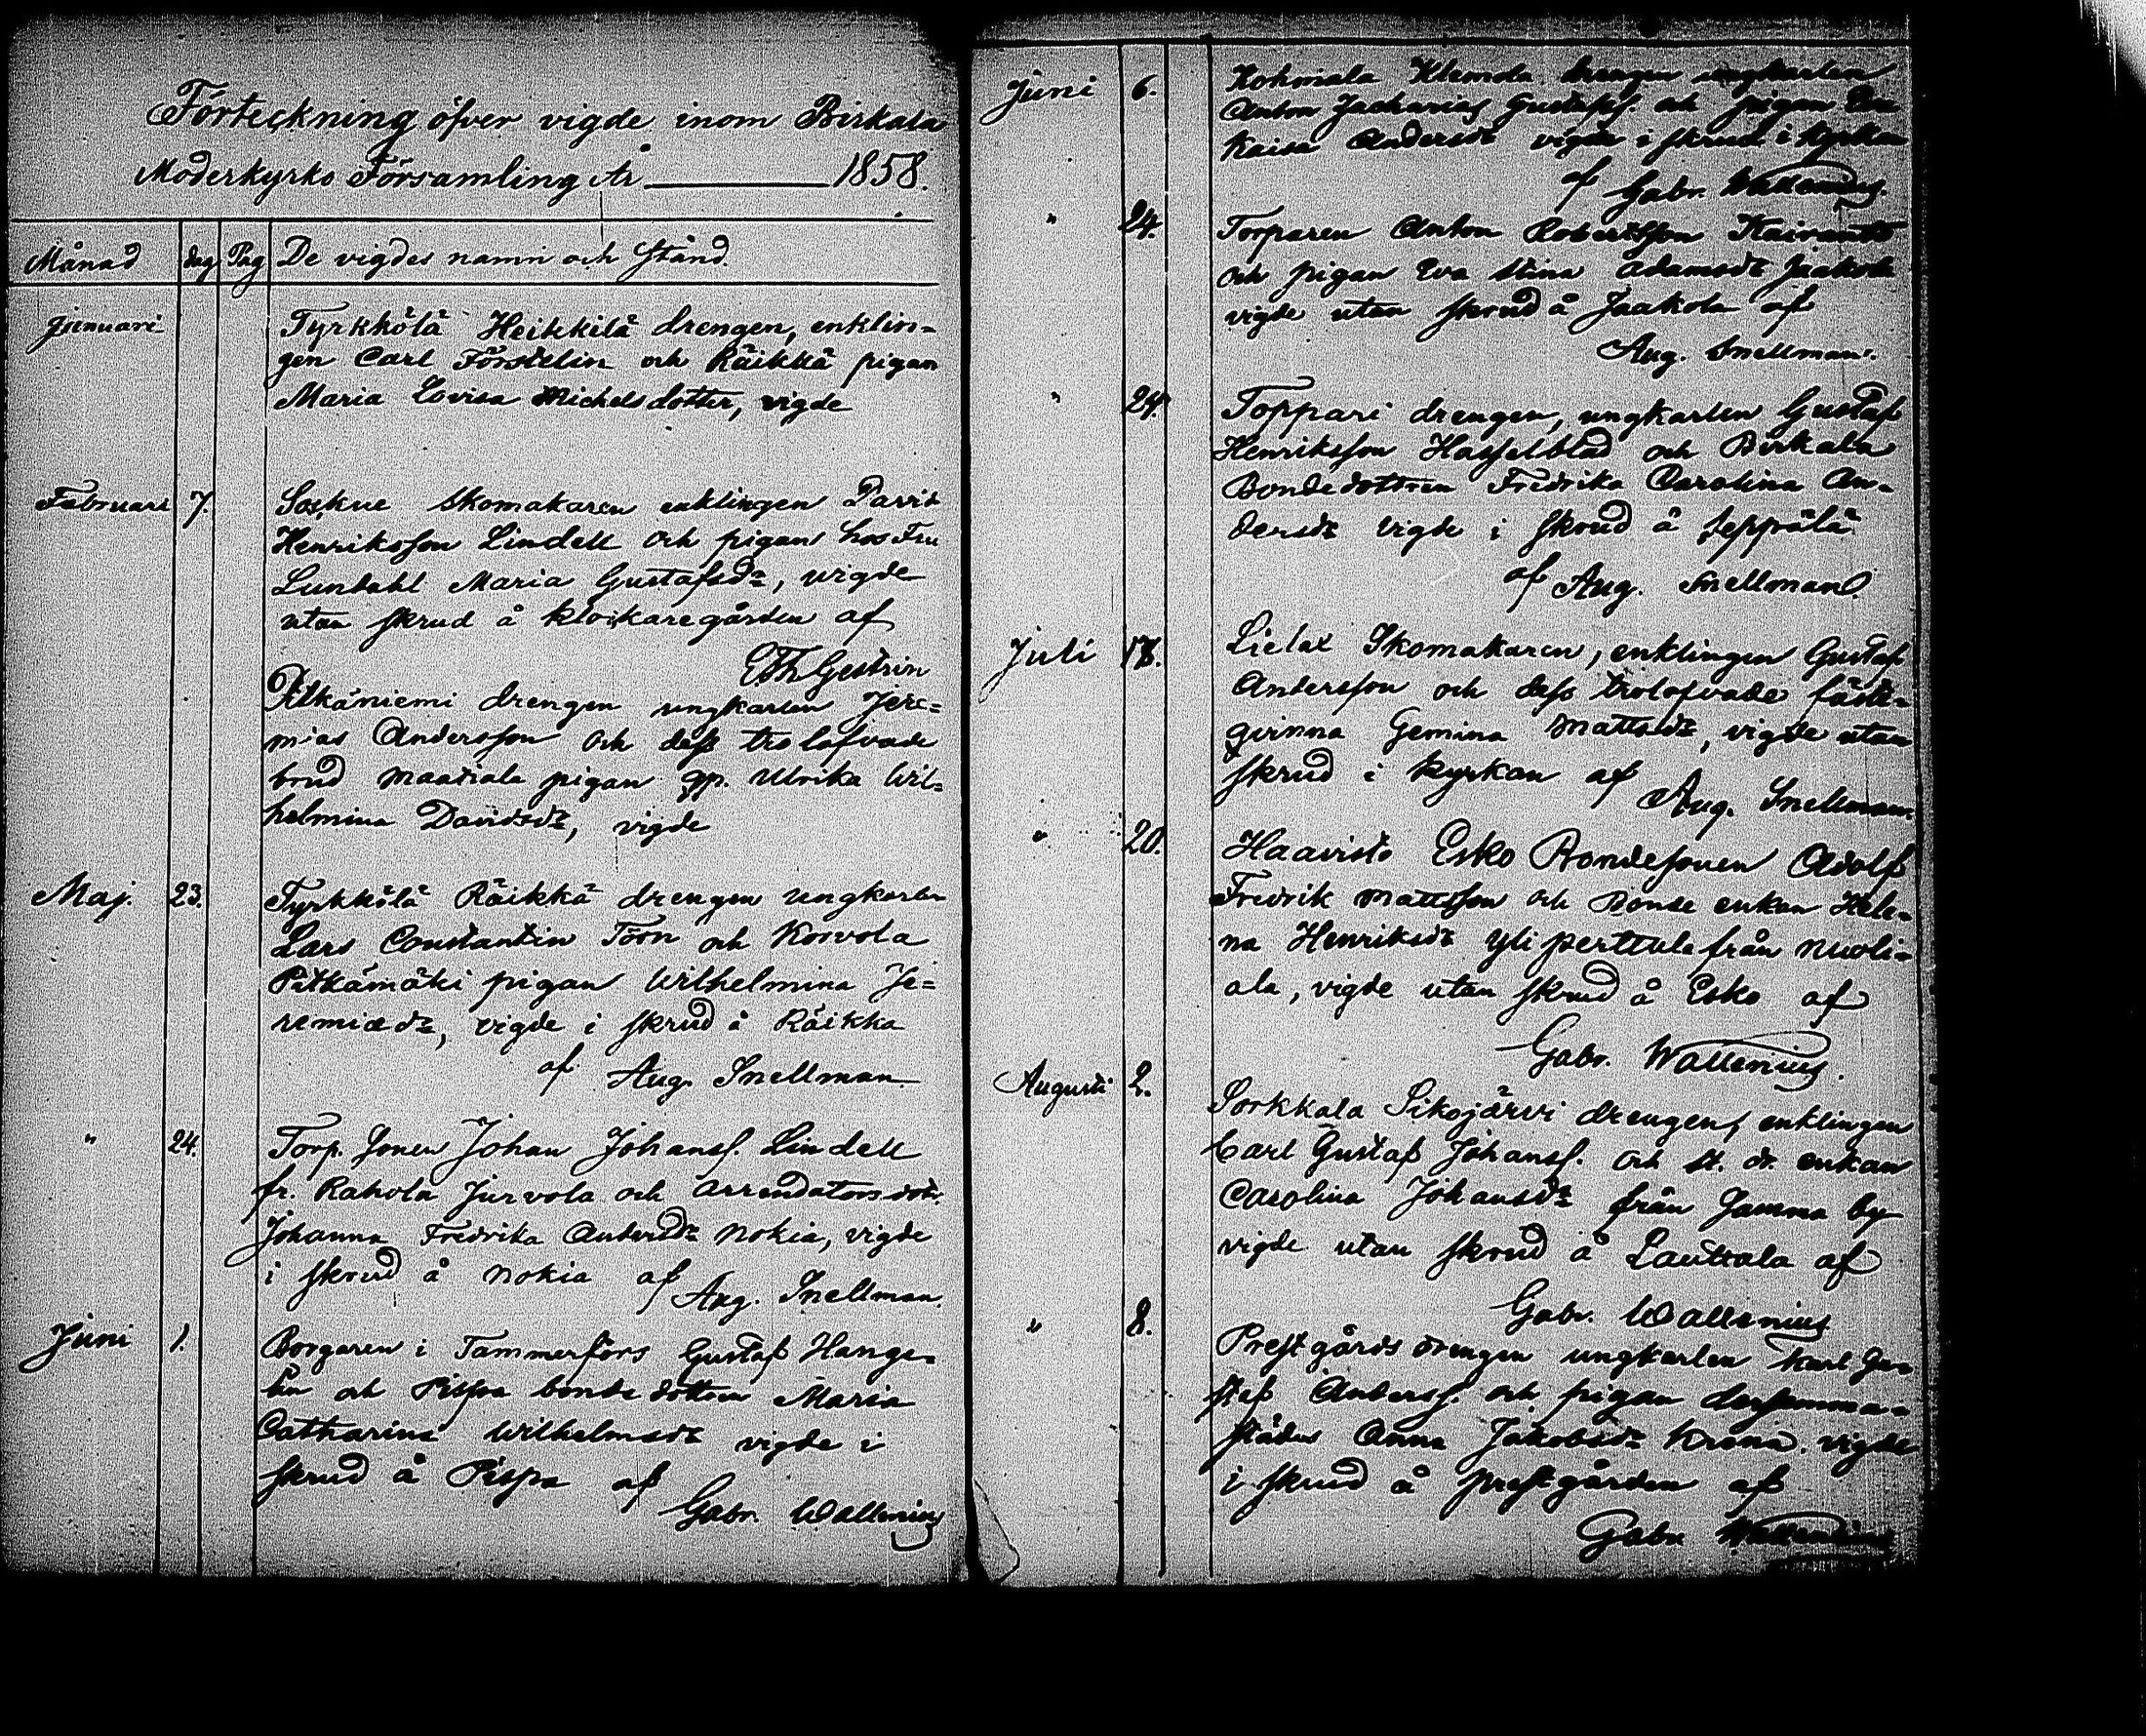 Förteckning öfver vigde inom Birkala
Moderkyrko Församling År 1858.
Månad dag Pag De vigdes namn och stånd.
Januari Tyrkkölä Heikkilä drengen, enklin-
gen Carl Förstelin och Räikkä pigan
Maria Lovisa Michelsdotter, vigde
Februari 7. Soškue skomakaren enklingen David
Henriksson Lindell och pigan hos Fru
Lundahl Maria Gustafsdr, vigde
utan skrud å klockaregården af
Gestrin
Pitkäniemi drengen ungkarlen Jere=
mias Andersson och dess trolofvade
brud Maatiala pigan qp. Ulrika Wil=
helmina Davidsdr, vigde
Maj. 23. Tyrkkölä Räikkä drengen ungkarlen
Lars Constantin Törn och Korvola
Pitkämäki pigan Wilhelmina Je=
remiædr, vigde i skrud å Räikkä
af Aug. Snellman
" 24. Torp. sonen Johan Johanss. Lindell
fr. Rahola Jurvola och arrendators dotr.
Johanna Fredrika Andersdr Nokia, vigde
i skrud å Nokia af
Aug. Snellman.
Juni 1. Borgaren i Tammerfors Gustaf Hange-
lin och Pispa bonde dottren Maria
Catharina Wilhelmsdr vigde i
skrud å Pispa af
Gabr. Wallenius
Juni 6. Kohmala Klemola drengen ungkarlen
Anton Zacharias Gustafss. och pigan Eva
Kaisa Andersdr vigde i skrud i kyrkan
af Gabr. Wallenius.
" 24. Torparen Anton Robertsson Kaivanto
och pigan Eva Stina Adamsdr Jaakola
vigde utan skrud å Jaakola af
Aug. Snellman.
" 24. Toppari drengen, ungkarlen Gustaf
Henriksson Hasselblad och Birkala
Bondedottren Fredrika Carolina An-
dersdr vigde i skrud å Seppälä
af Aug. Snellman
Juli Lielax Skomakaren, enklingen Gustaf
Andersson och dess trolofvade fäst-
qvinna Gemina Mattsdr, vigde utan
skrud i kyrkan af
Aug. Snellman.
" 20. Haavisto Esko Bondesonen Adolf
Fredrik Mattsson och Bonde enkan Hele-
na Henriksdr Yliperttula från Nuoli-
ala, vigde utan skrud å Esko af
Gabr. Wallenius.
Augusti 2. Sorkkala Sikojärvi drengen, enklingen
Carl Gustaf Johanss. och st. dr. enkan
Carolina Johansdr från Jamma by
vigde utan skrud å Lauttala af
Gabr. Wallenius
" 8. Prestgårds drengen ungkarlen Karl Gu-
staf Anderss. och pigan dersamma-
städes Anna Jakobsdr Krona. vigde
i skrud å prestgården af
Gabr. Wallenius